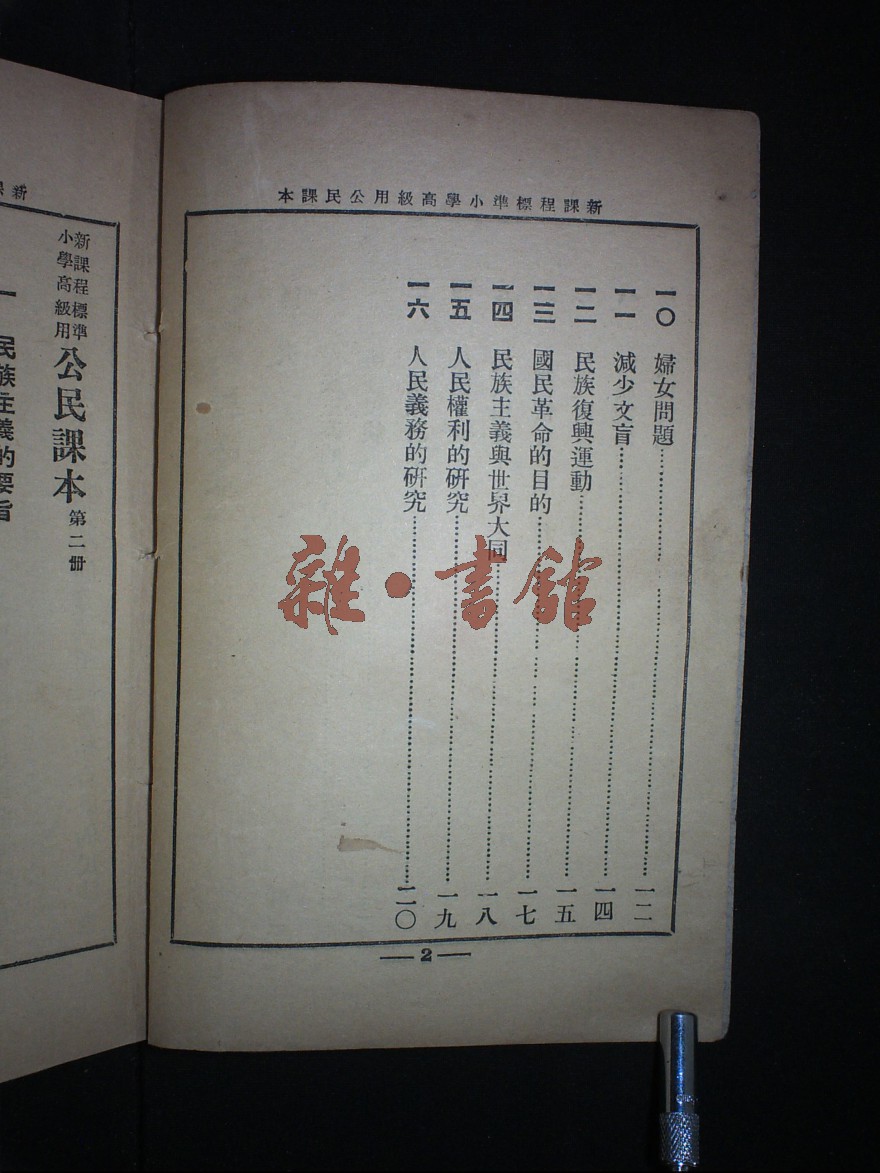 新課程標準小學高級用公民課本
一〇 婦女問題……一二
一一 減少文盲……一四
一二 民族復興運動……一五
一三 國民革命的目的……一七
一四 民族主義與世界大同……一八
一五 人民權利的研究……一九
一六 人民義務的研究……二〇
2
雜·書館
新課
新課程標準
小學高級用
公民課本 第二册
一 民族主義的要旨